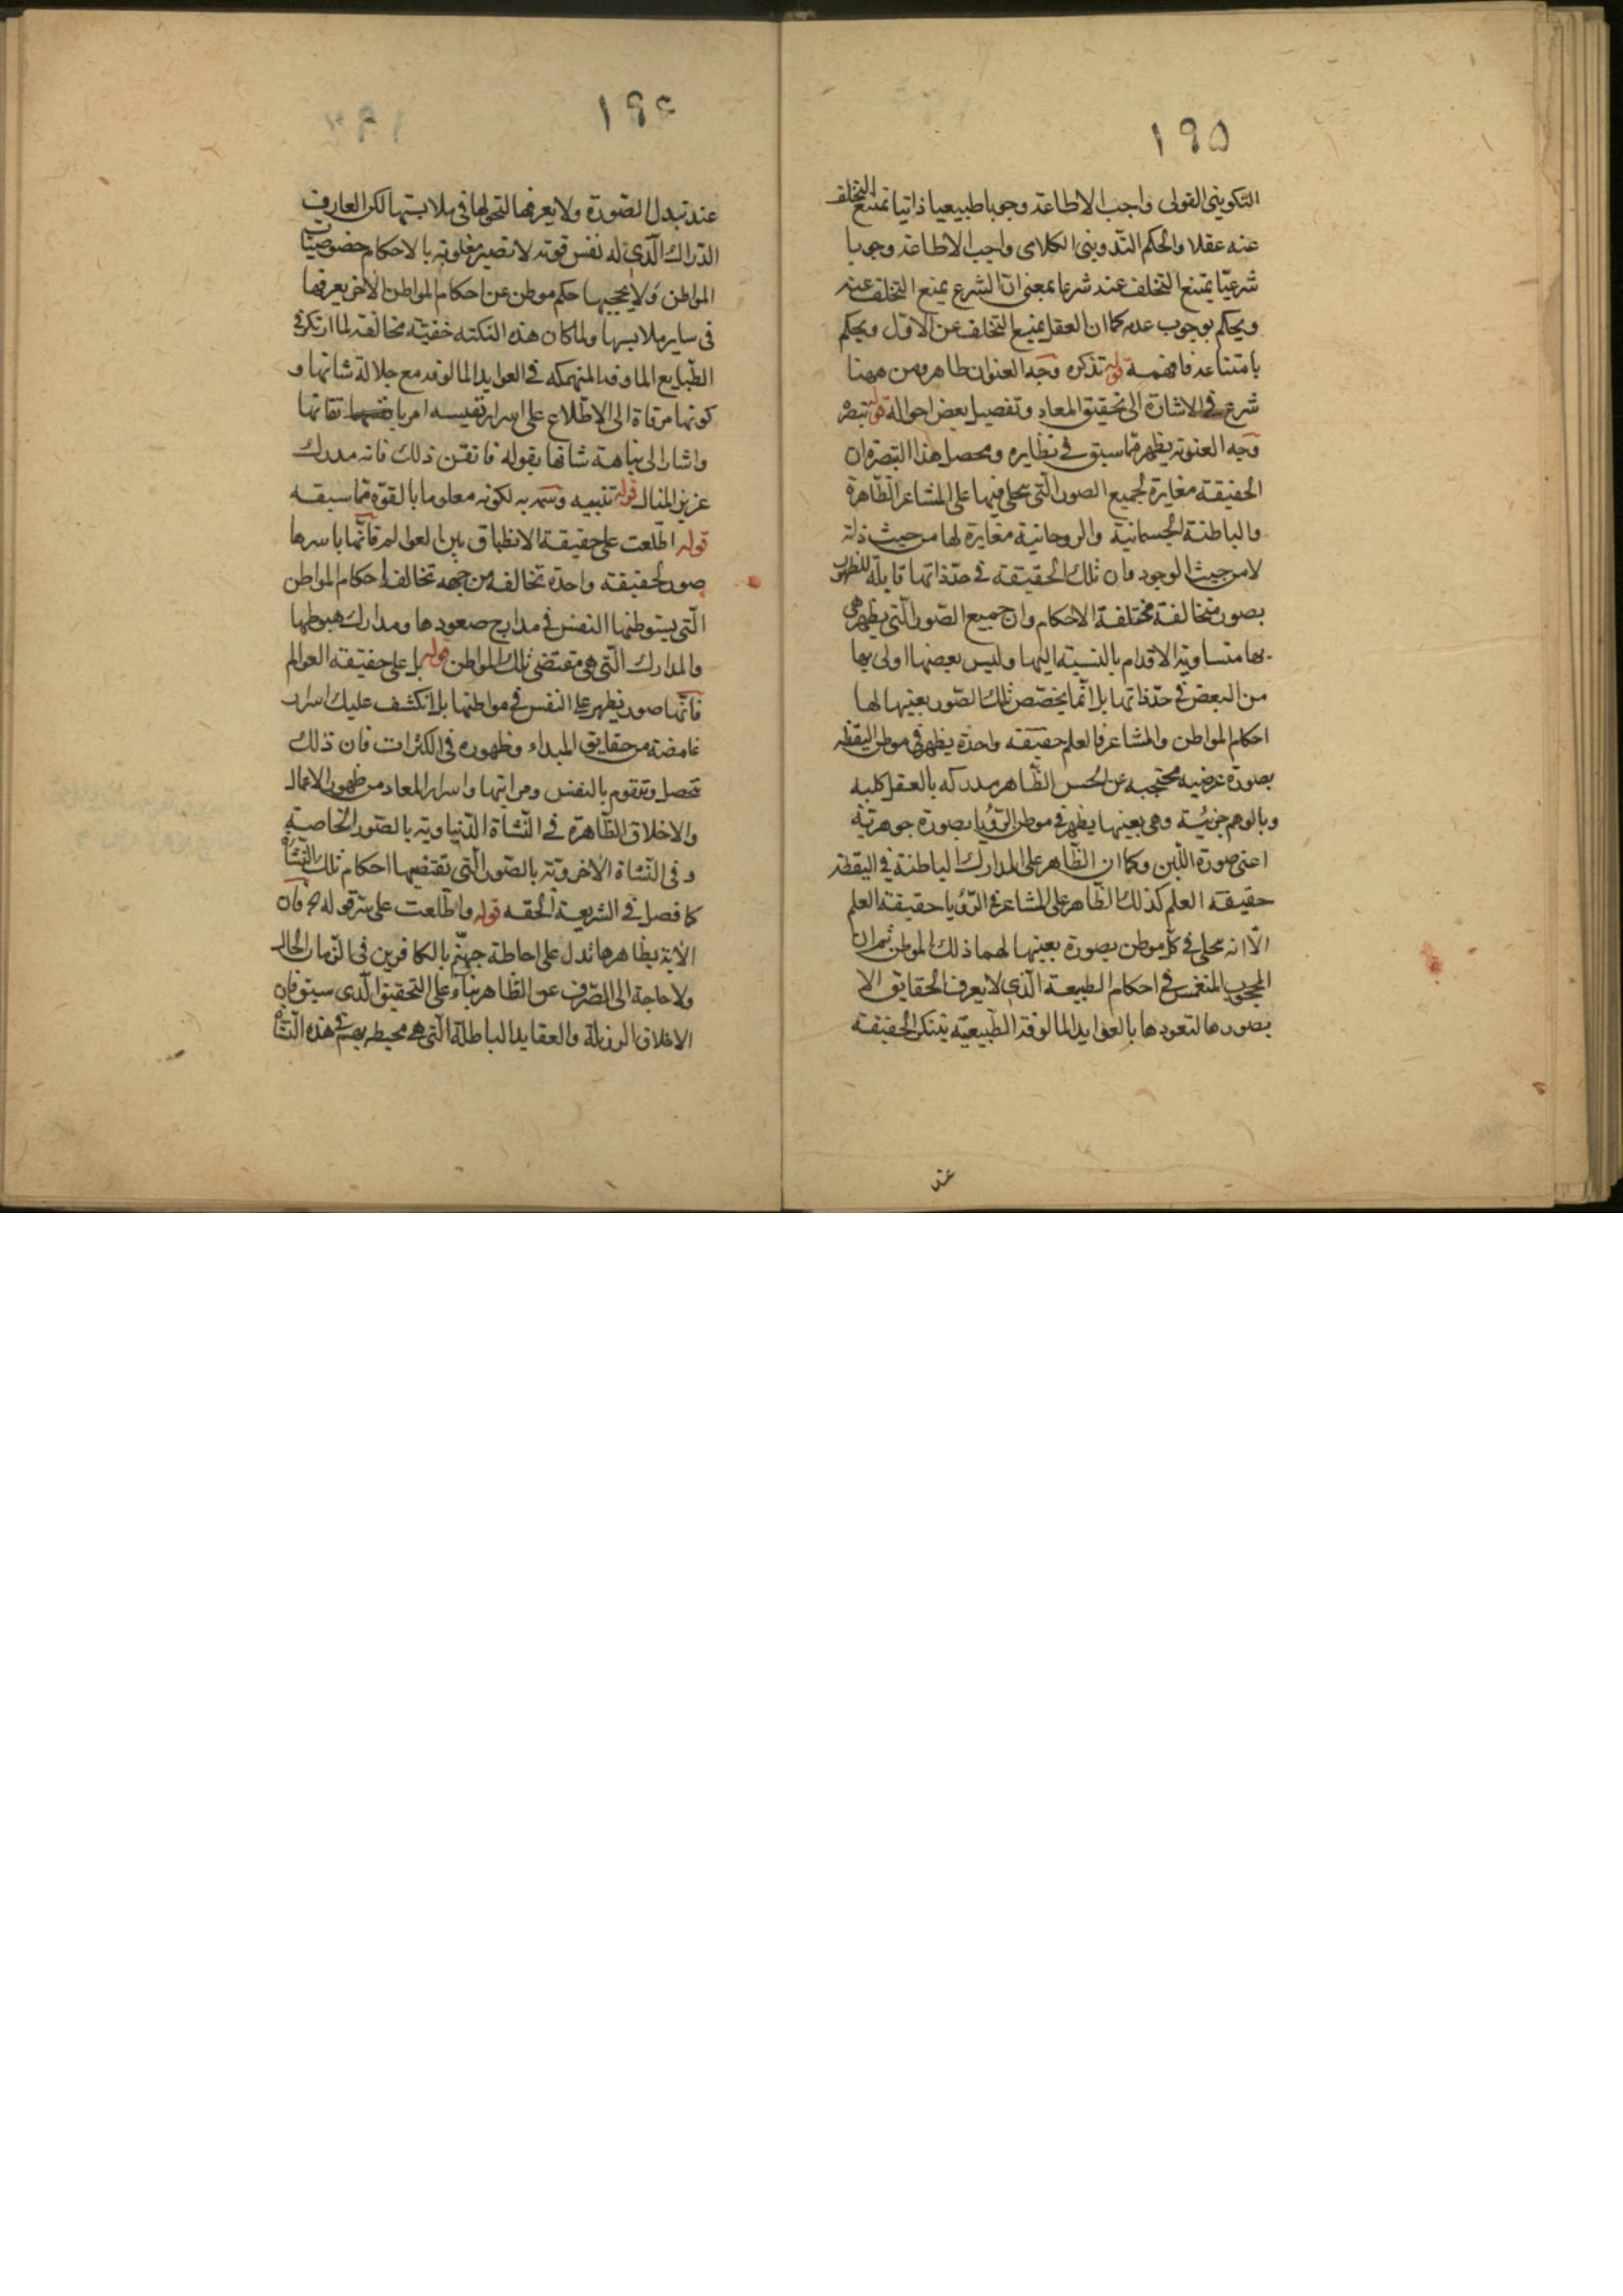 ١٩٥
التكوينى القولى واجب الاطاعة وجوبا طبيعيا ذاتيا تمتنع التخلف
عنه عقلا والحكم التدوينى الكلامى واجب الاطاعة وجوبا
شرعيّا يمتنع التخلف عنه شرعا بمعنى انّ الشرع يمنع التخلف عنه
ويحكم بوجوب عدمه كما ان العقل يمنع التخلف عن الاوّل ويحكم
بامتناعه فافهمه قوله تذكره وجه العنوان ظاهر ومن ههنا
شرع فى الاشارة الى تحقيق المعاد وتفصيل بعض احواله قوله تبصره
وجه العنونه يظهر ممّا سبق فى نظايره ومحصل هذا التبصره ان
الحقيقة مغايرة لجميع الصور الّتى يتجلى فيها على المشاعر الظاهرة
والباطنة الجسمانية والروحانية مغايرة لها من حيث ذاته
لا من حيث الوجود وان تلك الحقيقة فى حدّ ذاتها قابلة للظهور
بصور متخالفة مختلفة الاحكام وان جميع الصّور الّتى يظهر هى
بها متساوية الاقدام بالنسبة اليها وليس بعضها اولى بها
من البعض فى حدّ ذاتها بل انّما يخصّص تلك الصّور بعينها لها
احكام المواطن والمشاعر فالعلم حقيقة واحدة يظهر فى موطن اليقظه
بصورة عرضيه محتجبه عن الحس الظّاهر مدركه بالعقل كلية
وبالوهم جزئية وهى بعينها يظهر فى موطن الرّؤيا بصورة جوهريّة
اعنى صورة اللّبن وكما ان الظّاهر على المدارك الباطنة فى اليقظة
حقيقة العلم كذلك الظّاهر على المشاعر فى الرّؤيا حقيقة العلم
الّا انه تجلى فى كلّ موطن بصورة بعينها لهما ذلك الموطن ثم ان
المحجوب المنغمس فى احكام الطبيعة الّذى لا يعرف الحقايق الا
بصورها لتعودها بالعوايد المالوفة الطّبيعيّة يتنكر الحقيقة
عند
١٩٤
عند تبدل الصّورة ولا يعرفها لتحولها فى ملابستها لكن العارف
الدّراك الّذى له نفس قوية لا تصير مغلوبة بالاحكام خصوصيّات
المواطن ولا يحجبها حكم موطن عن احكام المواطن الاخر يعرفها
فى ساير ملابسها ولما كان هذه النّكته خفيّة مخالفة لما ارتكز فى
الطّبايع الماوفة المنهمكه فى العوايد المالوفة مع جلالة شانها و
كونها مرقاة الى الاطّلاع على اسرار نفيسه امر باتقانها
واشار الى نباهة شانها بقوله فاتقن ذلك فانه مدرك
عزيز المنال قوله تنبيه وسّمه به لكونه معلوما بالقوّه ممّا سبقه
قوله اطّلعت على حقيقة الانطباق بين العوالم فانّها باسرها
صور لحقيقة واحدة تخالفه من جهه تخالف احكام المواطن
الّتى يستوطنها النفس فى مدارج صعودها ومدارك هبوطها
والمدارك الّتى هى مقتضى تلك المواطن قوله بل على حقيقة العوالم
فانّها صور يظهر على النفس فى مواطنها بل انكشف عليك اسرار
غامضة من حقايق المبداء وظهوره فى الكثرات فان ذلك
تحصل وتتقوم بالنفس ومراتبها واسرار المعاد من ظهور الاعمال
والاخلاق الظّاهرة فى النّشاة الدّنياوية بالصّور الخاصة
وفى النّشاة الاخرويّة بالصّور الّتى تقتضيها احكام تلك النّشاة
كما فصل فى الشريعة الحقه قوله واطّلعت على سرّ قوله فانّ
الآية بظاهرها تدل على احاطة جهنّم بالكافرين فى الزّمان الحال
ولا حاجة الى الصّرف عن الظاهر بناء على التحقيق الّذى سبق فان
الاخلاق الرذيلة والعقايد الباطلة الّتى هى محيطه بهم فى هذه النّشاة